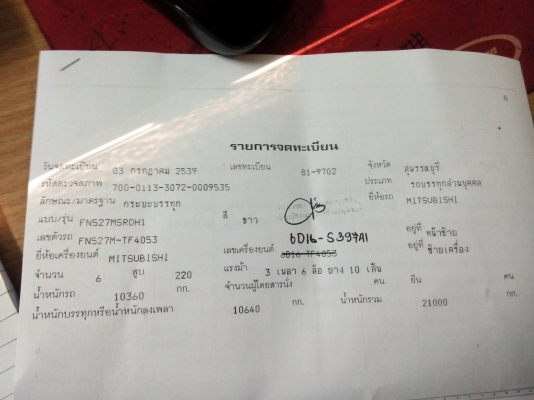 6
รายการจดทะเบียน
วันจดทะเบียน 03 กรกฎาคม 2539 เลขทะเบียน 81-9702 จังหวัด สุพรรณบุรี
รหัสตรวจสภาพ 700-0113-3072-0009535 ประเภท รถบรรทุกส่วนบุคคล
ลักษณะ/มาตรฐาน กระบะบรรทุก ยี่ห้อรถ MITSUBISHI
แบบ/รุ่น FN527MSRDH1 สี ขาว
เลขตัวรถ FN527M-TF4053 6D16-S397A1 อยู่ที่ หน้าซ้าย
ยี่ห้อเครื่องยนต์ MITSUBISHI เลขเครื่องยนต์ 6D16-TF4053 อยู่ที่ ซ้ายเครื่อง
จำนวน 6 สูบ 220 แรงม้า 3 เพลา 6 ล้อ ยาง 10 เส้น
น้ำหนักรถ 10360 กก. จำนวนผู้โดยสารนั่ง คน ยืน คน
น้ำหนักบรรทุกหรือน้ำหนักลงเพลา 10640 กก. น้ำหนักรวม 21000 กก.